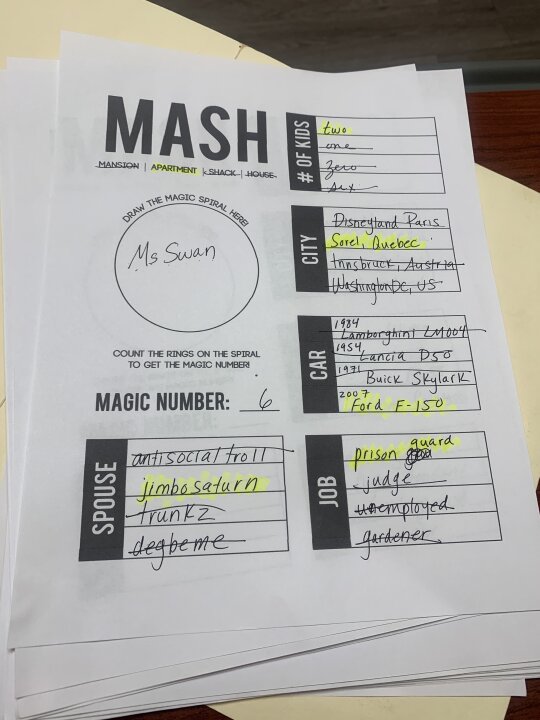 MASH
MANSION | APARTMENT | SHACK | HOUSE
DRAW THE MAGIC SPIRAL HERE!
Ms Swan
COUNT THE RINGS ON THE SPIRAL
TO GET THE MAGIC NUMBER!
MAGIC NUMBER: 6
# OF KIDS
two
one
zero
six
CITY
Disneyland Paris
Sorel, Quebec
Innsbruck, Austria
Washington DC, US
CAR
1984
Lamborghini LM004
1954
Lancia D50
1971
Buick Skylark
2007
Ford F-150
SPOUSE
antisocialtroll
jimbosaturn
trunkz
degbeme
JOB
prison guard
judge
unemployed
gardener